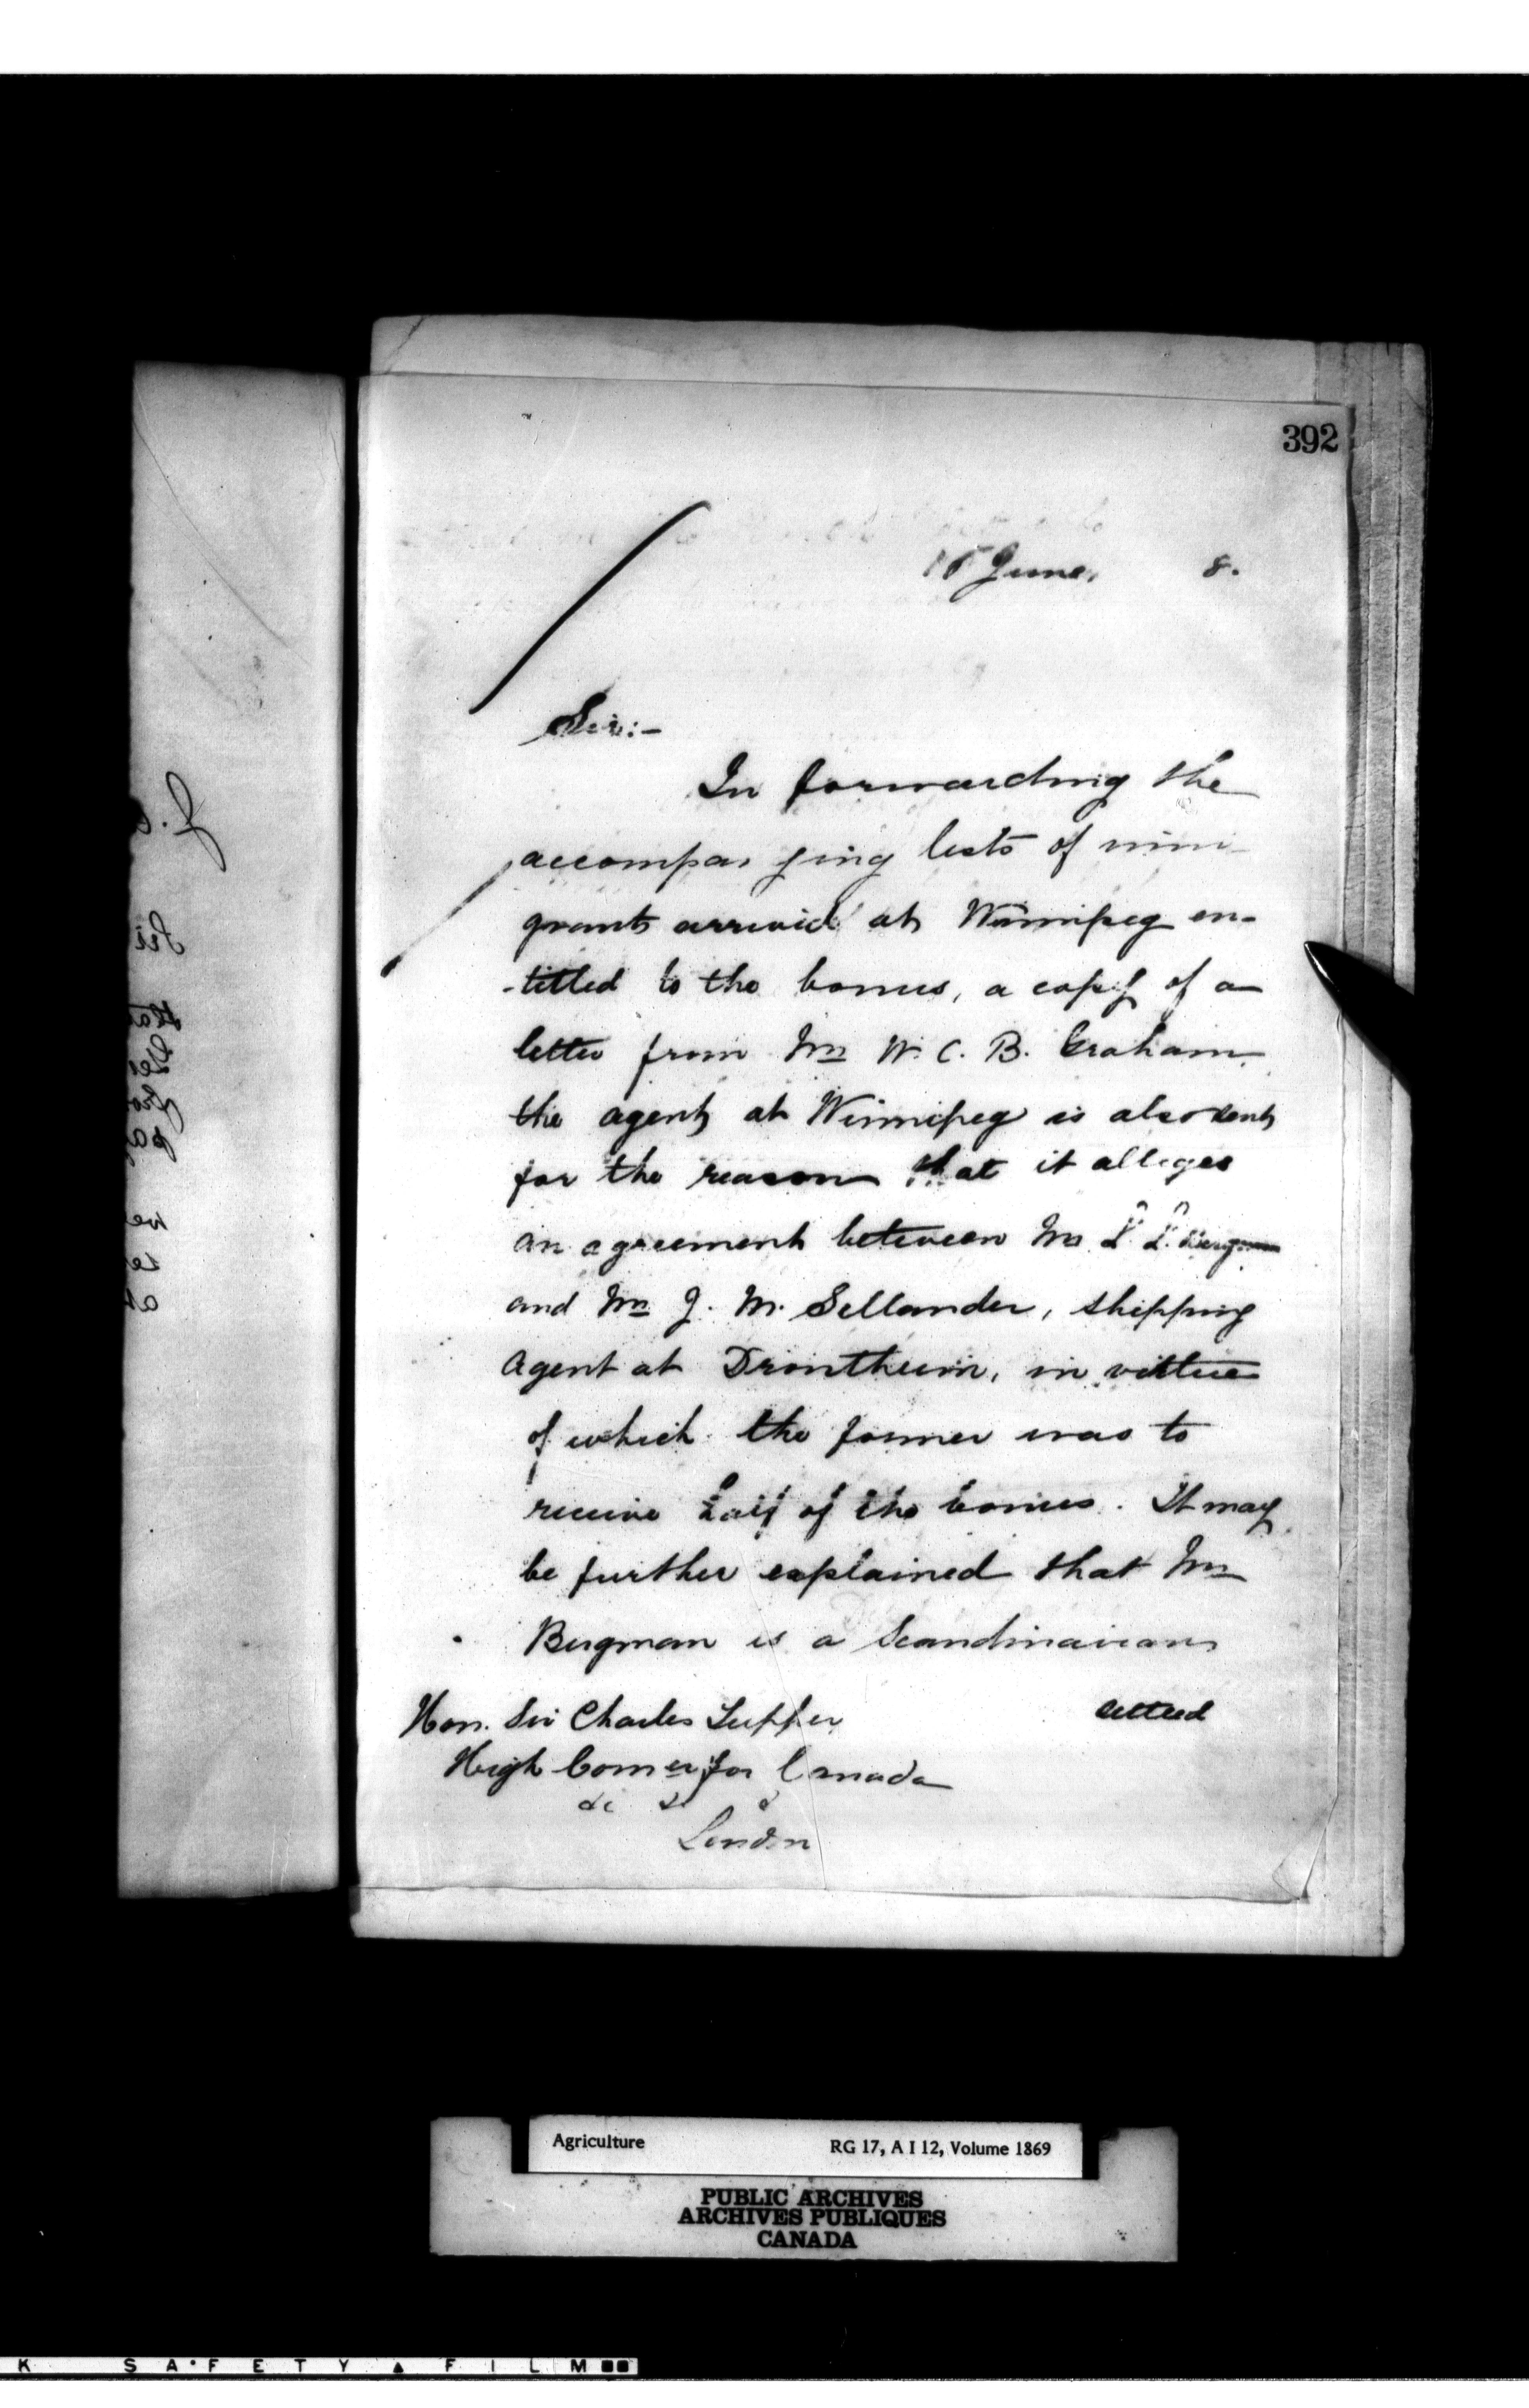 392
15 June, 8.
Sir:-
In forwarding the
accompanying lists of immi-
grants arrived at Winnipeg en-
-titled to the bonus, a copy of a
letter from Mr W. C. B. Graham
the agent at Winnipeg is also sent
for the reason that it alleges
an agreement between Mr Bergman
and Mr J. M. Sellander, shipping
Agent at Drontheim, in virtue
of which the former was to
receive half of the bonus. It may
be further explained that Mr
Bergman is a Scandinavian
Hon. Sir Charles Tupper settled
High Comer for Canada
&c &c &c
London
Agriculture RG 17, A I 12, Volume 1869
PUBLIC ARCHIVES
ARCHIVES PUBLIQUES
CANADA
K SAFETY FILM